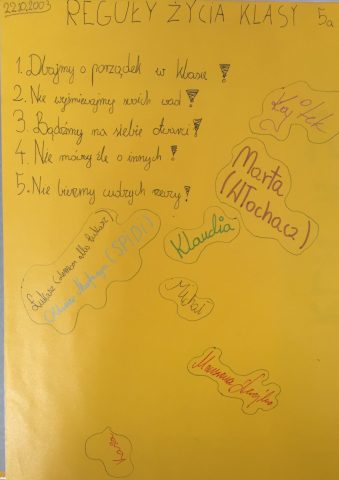 22.10.2003
REGUŁY ŻYCIA KLASY 5a
1. Dbajmy o porządek w klasie!
2. Nie wyśmiewajmy swoich wad!
3. Bądźmy na siebie otwarci!
4. Nie mówmy źle o innych!
5. Nie bierzmy cudzych rzeczy!
Marta
(Włochacz)
Klaudia
Łukasz
(SPIDI)
Kasia